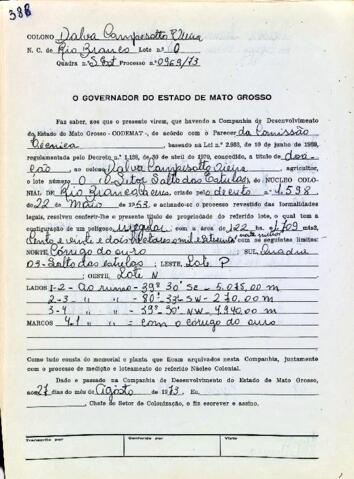 388
COLONO Dalva Campesatto Vieira
N. C. de Rio Branco Lote n.º O
Quadra n.º S. Est Processo n.º 0963/73
O GOVERNADOR DO ESTADO DE MATO GROSSO
Faz saber, aos que o presente virem, que havendo a Companhia de Desenvolvimento
do Estado de Mato Grosso - CODEMAT -, de acordo com o Parecer da Comissão
Técnica, baseado na Lei n.º 2.983, de 19 de junho de 1969,
regulamentada pelo Decreto n.º 1.138, de 30 de abril de 1970, concedido, a título de doa-
ção ao colono Dalva Campesatto Vieira agricultor,
o lote número O (Setor Salto das Estrelas), do NÚCLEO COLO-
NIAL DE Rio Branco, criado pelo decreto n.º 1.598
de 22 de Maio de 1953, e achando-se o processo revestido das formalidades
legais, resolveu conferir-lhe o presente título de propriedade do referido lote, o qual tem a
configuração de um polígono irregular com a área de 122 hs 1.709 ms2,
cento e vinte e dois hectares com as seguintes limites:
NORTE Córrego do ouro SUL
Salto das estrelas; LESTE, Lote P
; OESTE, Lote N
LADOS 1-2 - Ao rumo - 39º 30' SE - 5.075,00 m
2-3 " " - 80º 33' SW - 270,00 m
3-4 " " - 39º 30' NW - 4.940,00 m
MARCOS 4-1 " " = com o córrego do ouro
Como tudo consta do memorial e planta que ficam arquivados nesta Companhia, juntamente
com o processo de medição e loteamento do referido Núcleo Colonial.
Dado e passado na Companhia de Desenvolvimento do Estado de Mato Grosso,
aos 27 dias do mês de Agosto de 1973. Eu,
Chefe do Setor de Colonização, o fiz escrever e assino.
Transcrito por Conferido por Visto